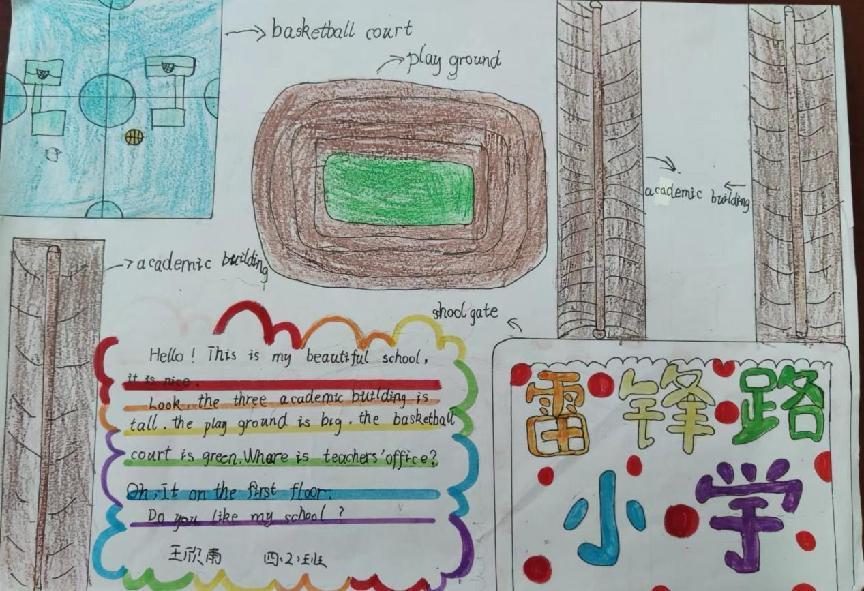 basketball court
play ground
academic building
academic building
shool gate
Hello! This is my beautiful school,
it is nice.
Look, the three academic building is
tall. the play ground is big. the basketball
court is green. Where is teachers' office?
Oh, it on the first floor.
Do you like my school?
王欣雨 四.2.班
雷锋路
小学